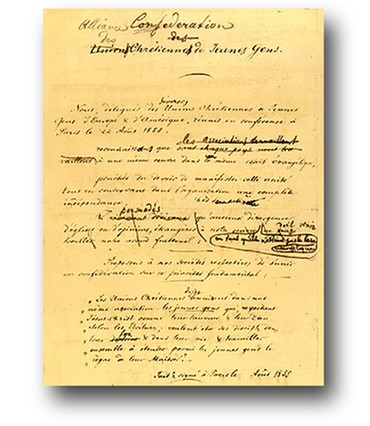 Alliance Confédération
des des
Unions Chrétiennes de Jeunes Gens.
diverses
Nous, délégués des Unions Chrétiennes de Jeunes
Gens d'Europe & d'Amérique, réunis en conférence à
Paris le 22 Août 1855.
reconnaissant que les associations travaillent
à une même œuvre dans le même esprit évangélique,
pénétrés du devoir de manifester cette unité
tout en conservant dans l'organisation une complète
indépendance
persuadés
d'églises ou d'opinions, étrangères à notre
troubler notre accord fraternel
Proposons à nos sociétés respectives de s'unir
en confédération sur ce principe fondamental :
Les Unions Chrétiennes dans une
même association les jeunes gens qui, regardant
Jésus-Christ comme leur Sauveur & leur Dieu
selon les Écritures, veulent être ses disciples,
leur foi & dans leur vie, & travailler
ensemble à étendre parmi les jeunes gens le
règne de leur Maître.
Fait & signé à Paris le Août 1855